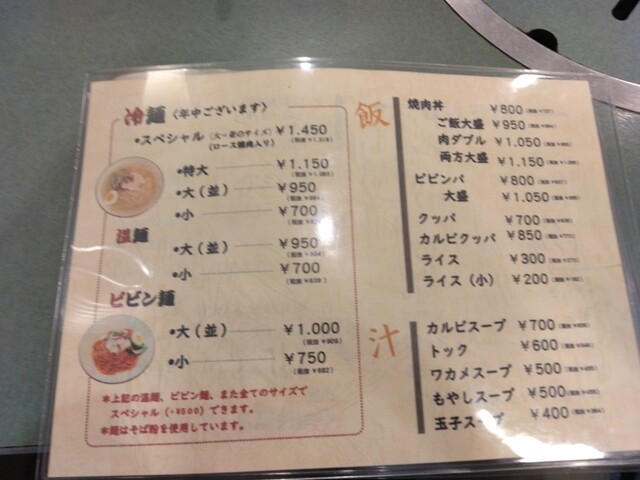 冷麺〈年中ございます〉
•スペシャル(大=並のサイズ) ¥1.450
(ロース焼肉入り)
•特大 ¥1.150
•大(並) ¥950
•小 ¥700
温麺
•大(並) ¥950
•小 ¥700
ビビン麺
•大(並) ¥1.000
(税抜¥909)
•小 ¥750
(税抜¥682)
*上記の温麺、ビビン麺、また全てのサイズで
スペシャル(+¥500)できます。
*麺はそば粉を使用しています。
飯
焼肉丼 ¥800(税抜¥727)
ご飯大盛 ¥950
肉ダブル ¥1.050
両方大盛 ¥1.150
ビビンバ ¥800
大盛 ¥1.050
クッパ ¥700
カルビクッパ ¥850
ライス ¥300
ライス(小) ¥200
汁
カルビスープ ¥700
トック ¥600
ワカメスープ ¥500
もやしスープ ¥500
玉子スープ ¥400